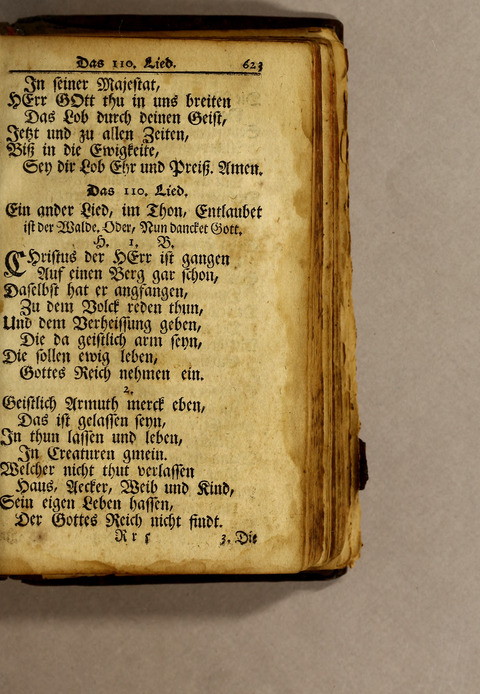 Das 110. Lied. 623
In seiner Majestat,
HErr GOtt thu in uns breiten
Das Lob durch deinen Geist,
Jetzt und zu allen Zeiten,
Biß in die Ewigkeite,
Sey dir Lob Ehr und Preiß. Amen.
Das 110. Lied.
Ein ander Lied, im Thon, Entlaubet
ist der Walde. Oder, Nun dancket Gott.
H. 1. B.
CHristus der HErr ist gangen
Auf einen Berg gar schon,
Daselbst hat er angfangen,
Zu dem Volck reden thun,
Und dem Verheissung geben,
Die da geistlich arm seyn,
Die sollen ewig leben,
Gottes Reich nehmen ein.
2.
Geistlich Armuth merck eben,
Das ist gelassen seyn,
In thun lassen und leben,
In Creaturen gmein.
Welcher nicht thut verlassen
Haus, Aecker, Weib und Kind,
Sein eigen Leben hassen,
Der Gottes Reich nicht findt.
R r 5 3. Die